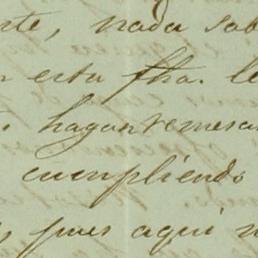 te, nada sab
n esta fha. le
hagan remesa
cumpliendo
, pues aqui n